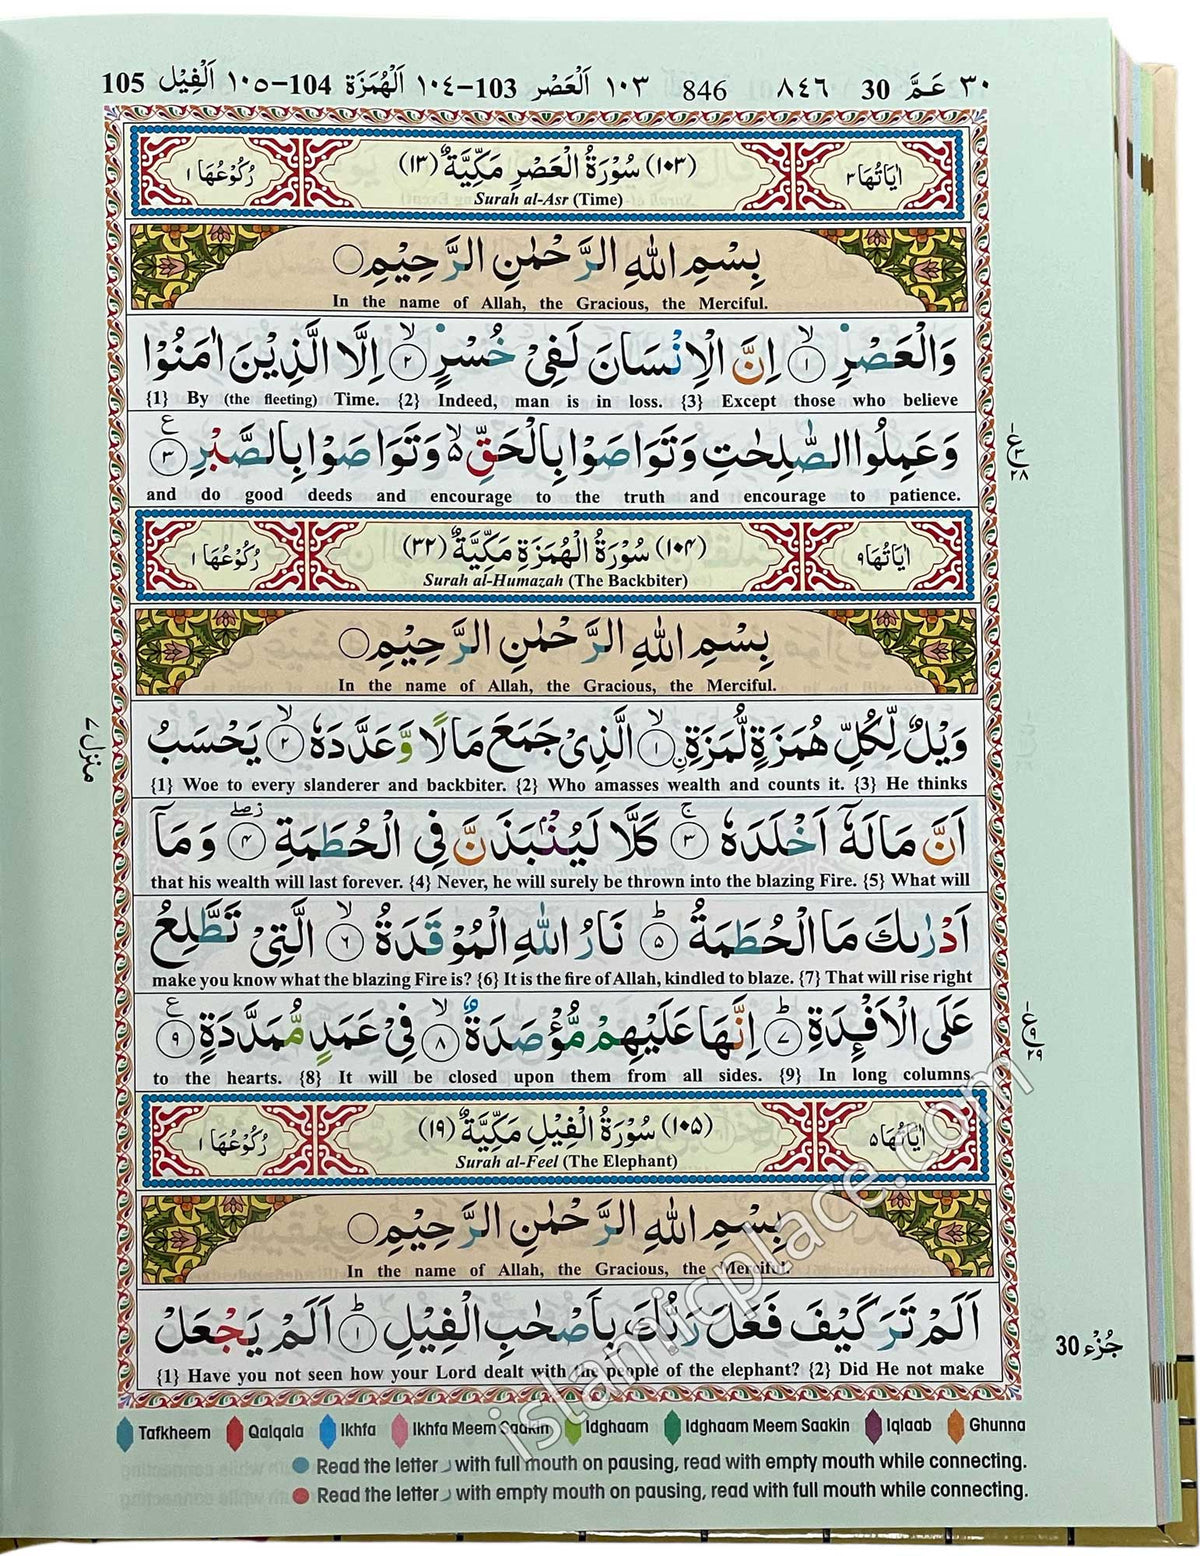 ٣٠ عَـمَّ 30 ٨٤٦ 846 ١٠٣ اَلْعَصْر 103–١٠٤ اَلْهُمَزَة 104–١٠٥ اَلْفِيْل 105
اٰيَاتُهَا ٣ (١٠٣) سُوْرَةُ الْعَصْرِ مَكِّيَّةٌ (١٣) رُكُوْعُهَا ١
Surah al-Asr (Time)
بِسْمِ اللّٰهِ الرَّحْمٰنِ الرَّحِيْمِ
In the name of Allah, the Gracious, the Merciful.
وَالْعَصْرِ ۙ ١ اِنَّ الْاِنْسَانَ لَفِيْ خُسْرٍ ۙ ٢ اِلَّا الَّذِيْنَ اٰمَنُوْا
{1} By (the fleeting) Time. {2} Indeed, man is in loss. {3} Except those who believe
وَعَمِلُوا الصّٰلِحٰتِ وَتَوَاصَوْا بِالْحَقِّ ۙ وَتَوَاصَوْا بِالصَّبْرِ ٣ ع
and do good deeds and encourage to the truth and encourage to patience.
ع ٣ ٢٨
اٰيَاتُهَا ٩ (١٠٤) سُوْرَةُ الْهُمَزَةِ مَكِّيَّةٌ (٣٢) رُكُوْعُهَا ١
Surah al-Humazah (The Backbiter)
بِسْمِ اللّٰهِ الرَّحْمٰنِ الرَّحِيْمِ
In the name of Allah, the Gracious, the Merciful.
وَيْلٌ لِّكُلِّ هُمَزَةٍ لُّمَزَةِ ۙ ١ اۨلَّذِيْ جَمَعَ مَالًا وَّعَدَّدَهٗ ۙ ٢ يَحْسَبُ
{1} Woe to every slanderer and backbiter. {2} Who amasses wealth and counts it. {3} He thinks
منزل ٧
اَنَّ مَالَهٗٓ اَخْلَدَهٗ ۚ ٣ كَلَّا لَيُنْۢبَذَنَّ فِى الْحُطَمَةِ ٤ وَمَآ
that his wealth will last forever. {4} Never, he will surely be thrown into the blazing Fire. {5} What will
اَدْرٰىكَ مَا الْحُطَمَةُ ؕ ٥ نَارُ اللّٰهِ الْمُوْقَدَةُ ۙ ٦ الَّتِيْ تَطَّلِعُ
make you know what the blazing Fire is? {6} It is the fire of Allah, kindled to blaze. {7} That will rise right
عَلَى الْاَفْـِٕدَةِ ؕ ٧ اِنَّهَا عَلَيْهِمْ مُّؤْصَدَةٌ ۙ ٨ فِيْ عَمَدٍ مُّمَدَّدَةٍ ٩ ع
to the hearts. {8} It will be closed upon them from all sides. {9} In long columns.
ع ٩ ٢٩
اٰيَاتُهَا ٥ (١٠٥) سُوْرَةُ الْفِيْلِ مَكِّيَّةٌ (١٩) رُكُوْعُهَا ١
Surah al-Feel (The Elephant)
بِسْمِ اللّٰهِ الرَّحْمٰنِ الرَّحِيْمِ
In the name of Allah, the Gracious, the Merciful.
اَلَمْ تَرَ كَيْفَ فَعَلَ رَبُّكَ بِاَصْحٰبِ الْفِيْلِ ؕ ١ اَلَمْ يَجْعَلْ
{1} Have you not seen how your Lord dealt with the people of the elephant? {2} Did He not make
جُزْء 30
Tafkheem Qalqala Ikhfa Ikhfa Meem Saakin Idghaam Idghaam Meem Saakin Iqlaab Ghunna
Read the letter ر with full mouth on pausing, read with empty mouth while connecting.
Read the letter ر with empty mouth on pausing, read with full mouth while connecting.
islamicplace.com